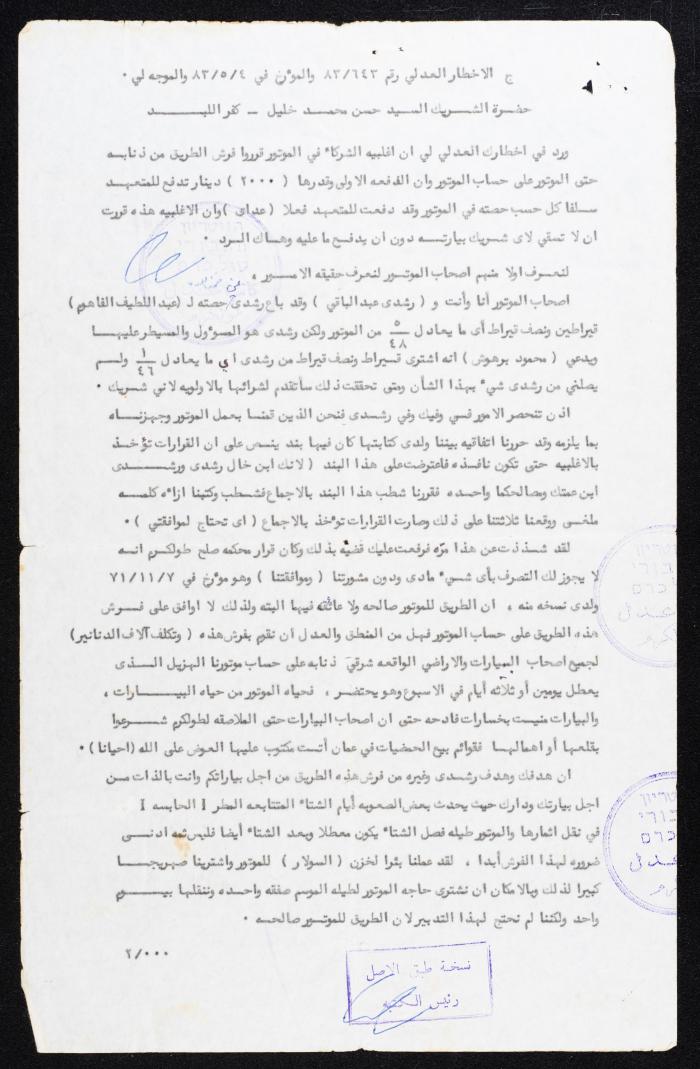 ج الاخطار العدلي رقم ٨٣/٦٤٣ والمؤرخ في ٨٣/٥/٤ والموجه لي .
حضرة الشريك السيد حسن محمد خليل - كفر اللبد
ورد في اخطارك العدلي لي ان اغلبيه الشركاء في الموتور قرروا فرش الطريق من ذنابه
حتى الموتور على حساب الموتور وان الدفعه الاولى وقدرها ( ٢٠٠٠ ) دينار تدفع للمتعهد
سلفا كل حسب حصته في الموتور وقد دفعت للمتعهد فعلا ( عداى ) وان الاغلبيه هذه قررت
ان لا تسقي لاى شريك بيارته دون ان يدفع ما عليه وهناك الرد .
لنعرف اولا منهم اصحاب الموتور لنعرف حقيقه الامور ،
اصحاب الموتور أنا وأنت و ( رشدى عبد الباقي ) وقد باع رشدى حصته لـ (عبد اللطيف الفاهوم )
قيراطين ونصف قيراط أى ما يعادل ٥/٤٨ من الموتور ولكن رشدى هو المسؤول والمسيطر عليها
ويدعي ( محمود برهوش ) انه اشترى قيراط ونصف قيراط من رشدى اي ما يعادل ١/٤٦ ولم
يصلني من رشدى شيء بهذا الشأن ومتى تحققت ذلك سأتقدم لشرائها بالاولويه لاني شريك .
اذن تنحصر الامور فسي وفيك وفي رشدى فنحن الذين قمنا بعمل الموتور وجهزناه
بما يلزمه وقد حررنا اتفاقيه بيننا ولدى كتابتها كان فيها بند ينص على ان القرارات تؤخذ
بالاغلبيه حتى تكون نافذه فاعترضت على هذا البند ( لانك ابن خال رشدى ورشدى
ابن عمتك ومصالحكما واحده فقررنا شطب هذا البند بالاجماع فشطب وكتبنا ازاءه كلمه
ملغى ووقعنا ثلاثتنا على ذلك وصارت القرارات تؤخذ بالاجماع ( اى تحتاج لموافقتي ) .
لقد شذذت عن هذا مره فرفعت عليك قضيه بذلك وكان قرار محكمه صلح طولكرم انه
لا يجوز لك التصرف بأى شيء مادى ودون مشورتنا ( وموافقتنا ) وهو مؤرخ في ٧١/١١/٧
ولدى نسخه منه ، ان الطريق للموتور صالحه ولا عائقه فيها البته ولذلك لا اوافق على فرش
هذه الطريق على حساب الموتور فهل من المنطق والعدل ان نقوم بفرش هذه ( وتكلف آلاف الدنانير)
لجميع اصحاب السيارات والاراضي الواقعه شرقي ذنابه على حساب موتورنا الهزيل الذى
يعطل يومين أو ثلاثه أيام في الاسبوع وهو يحتضر ، فحياه الموتور من حياه البيارات ،
والبيارات منيت بخسارات فادحه حتى ان اصحاب البيارات حتى الملاصقه لطولكرم شرعوا
بقلعها أو اهمالها فقوائم بيع الحمضيات في عمان أتست مكتوب عليها العوض على الله (احيانا) .
ان هدفك وهدف رشدى وغيره من فرش هذه الطريق من اجل بياراتكم وانت بالذات من
اجل بيارتك ودارك حيث يحدث بعض الصعوبه أيام الشتاء المتتابعه المطر I الحابسه I
في نقل اثمارها والموتور طيله فصل الشتاء يكون معطلا وبعد الشتاء أيضا فليس ثمه ادنى
ضروره لهذا الفرش أبدا ، لقد عملنا بئرا لخزن ( السولار ) للموتور واشترينا صهريجا
كبيرا لذلك وبالامكان ان نشترى حاجه الموتور لطيله الموسم صفقه واحده وننقلها بيوم
واحد ولكننا لم نحتج لهذا التدبير لان الطريق للموتور صالحه .
٢/٠٠٠
نسخة طبق الاصل
رئيس الكتبه